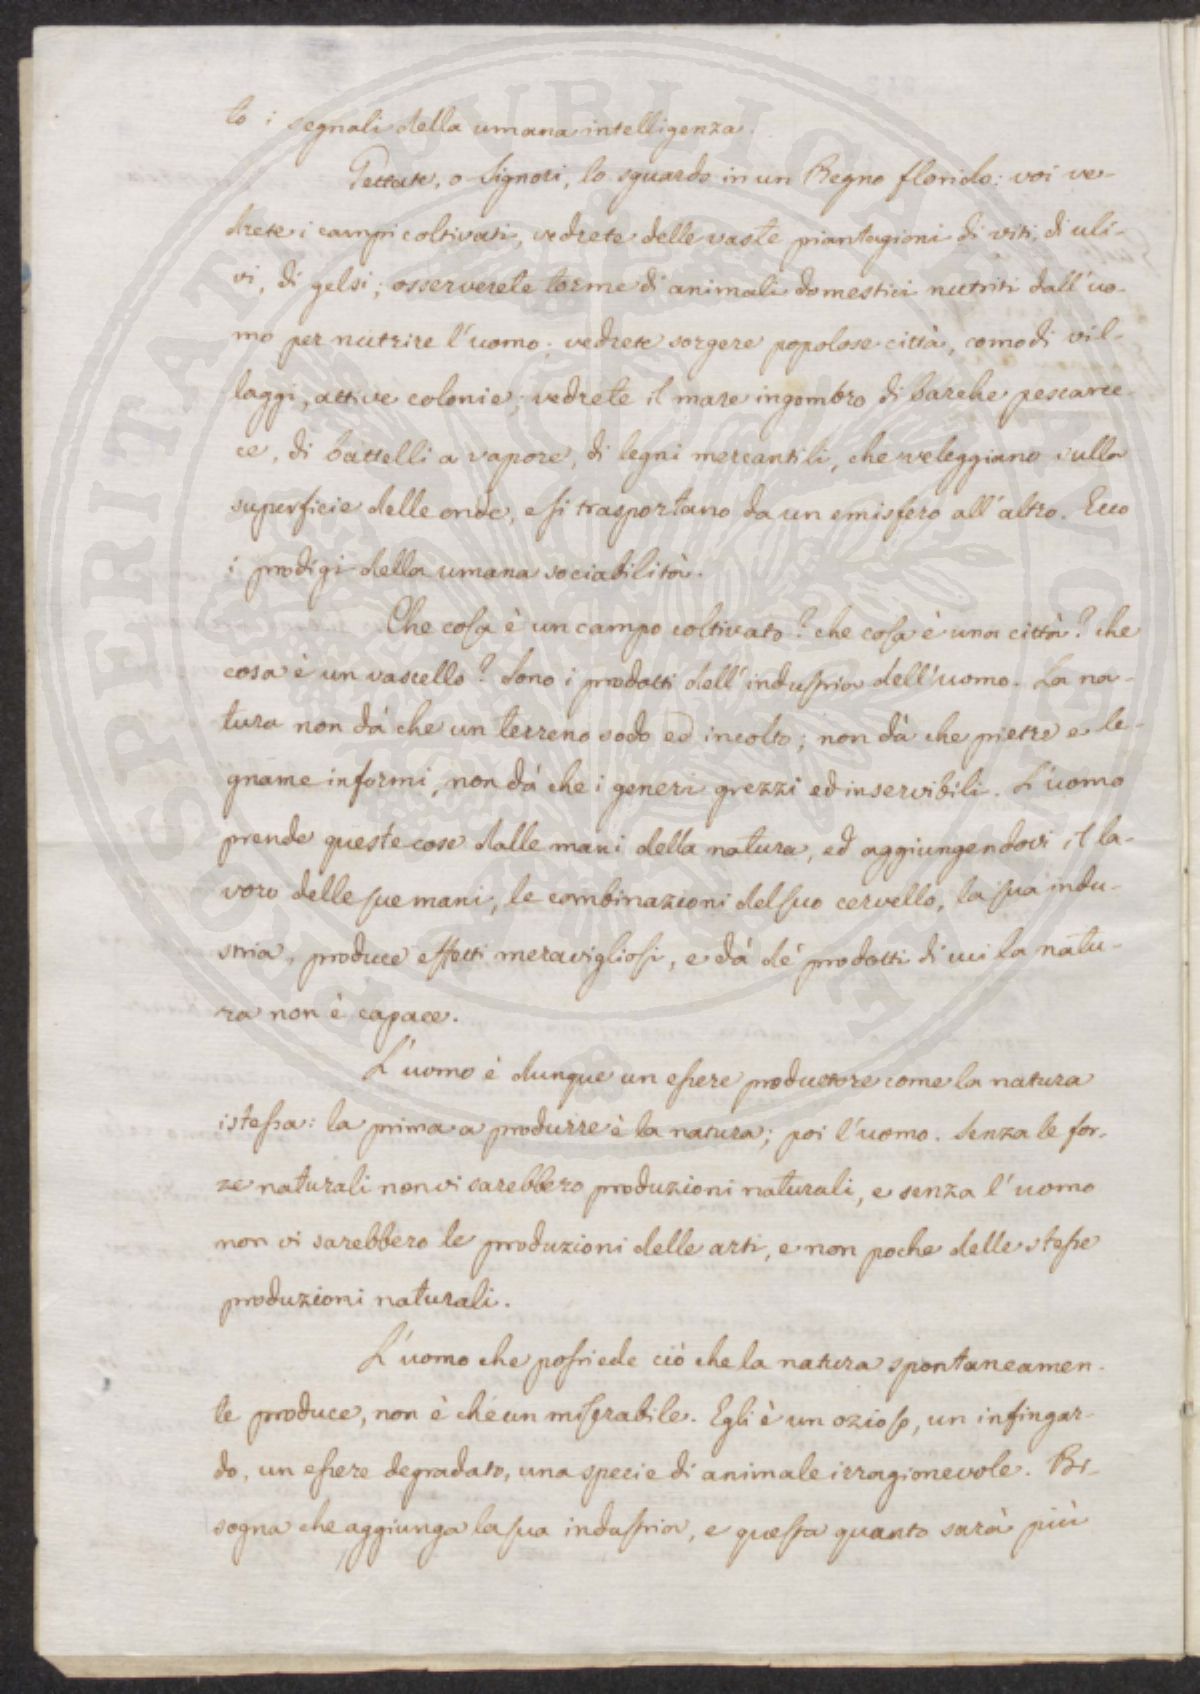 to i segnali della umana intelligenza.
Gettate, o Signori, lo sguardo in un Regno florido: voi ve-
drete i campi coltivati, vedrete delle vaste piantagioni di viti, di uli-
vi, di gelsi; osserverete torme di animali domestici nutriti dall'uo-
mo per nutrire l'uomo; vedrete sorgere popolose città, comodi vil-
laggi, attive colonie; vedrete il mare ingombro di barche pescarec-
ce, di battelli a vapore, di legni mercantili, che veleggiano sulla
superficie delle onde, e si trasportano da un emisfero all'altro. Ecco
i prodigi della umana sociabilità.
Che cosa è un campo coltivato? che cosa è una città? che
cosa è un vascello? Sono i prodotti dell'industria dell'uomo. La na-
tura non dà che un terreno sodo ed incolto; non dà che pietre e le-
gname informi, non dà che i generi grezzi ed inservibili. L'uomo
prende queste cose dalle mani della natura, ed aggiungendovi il la-
voro delle sue mani, le combinazioni del suo cervello, la sua indu-
stria, produce effetti meravigliosi, e dà de' prodotti di cui la natu-
ra non è capace.
L'uomo è dunque un essere produttore come la natura
istessa: la prima a produrre è la natura; poi l'uomo. Senza le for-
ze naturali non vi sarebbero produzioni naturali, e senza l'uomo
non vi sarebbero le produzioni delle arti, e non poche delle stesse
produzioni naturali.
L'uomo che possiede ciò che la natura spontaneamen-
te produce, non è che un miserabile. Egli è un ozioso, un infingar-
do, un essere degradato, una specie di animale irragionevole. Bi-
sogna che aggiunga la sua industria, e questa quanto sarà più